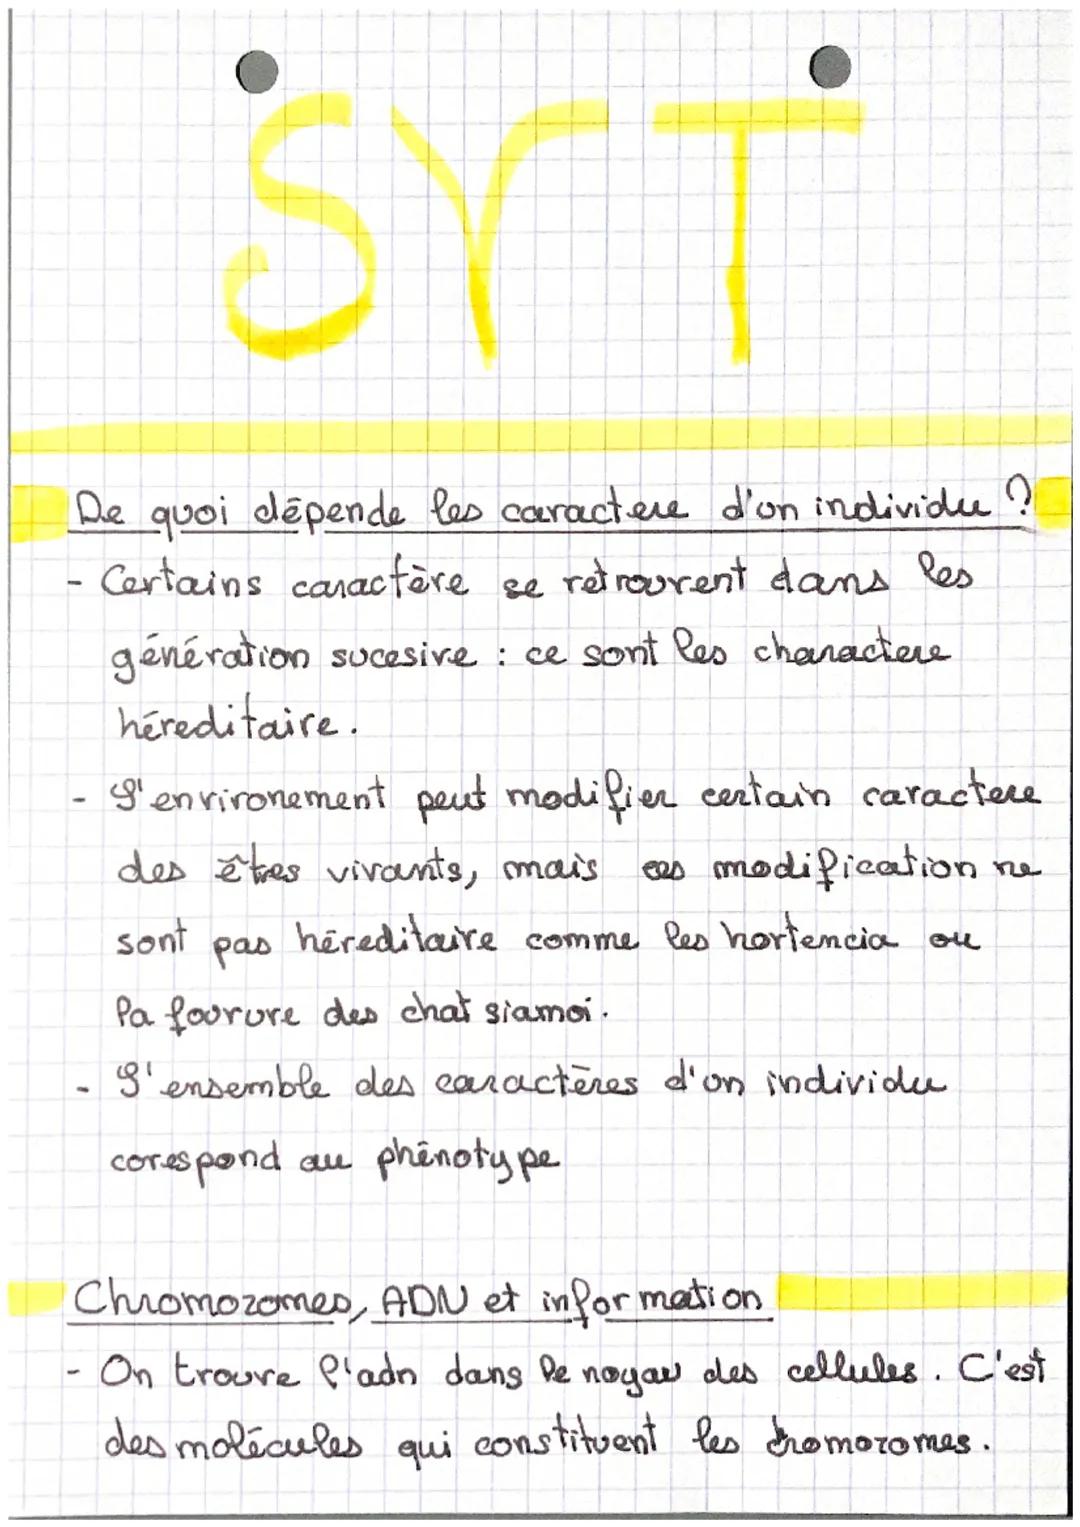 SVT
De quoi dépende les caractere d'un individu ?
- Certains caractère se retrouvent dans les
génération sucesive : ce sont les charactere
héreditaire.
- L'environement peut modifier certain caractere
des êtres vivants, mais ces modification ne
sont pas héreditaire comme les hortencia ou
la fourure des chat siamoi.
- L'ensemble des caractères d'un individu
corespond au phénotype
Chromozomes, ADN et information
- On trouve l'adn dans le noyau des cellules. C'est
des molécules qui constituent les chromozomes.